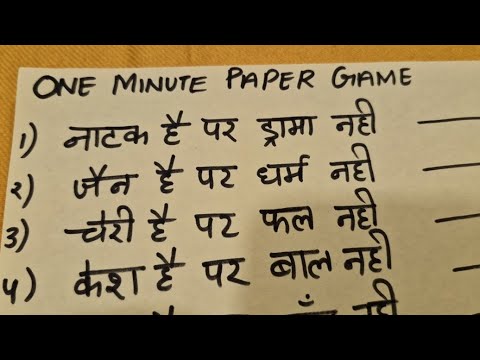 ONE MINUTE PAPER GAME
1) नाटक है पर ड्रामा नही
2) जैन है पर धर्म नही
3) चेरी है पर फल नही
4) केश है पर बाल नही